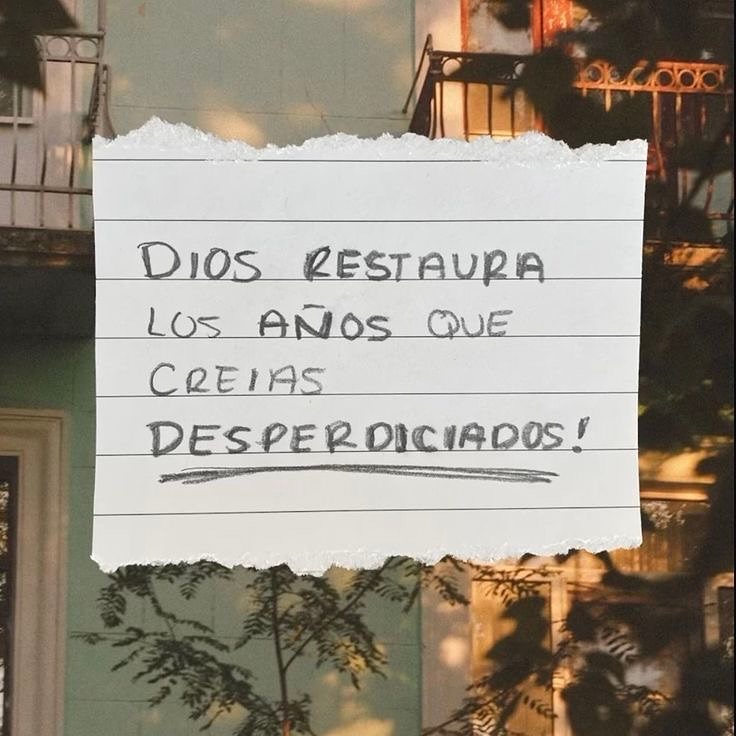 DIOS RESTAURA
LOS AÑOS QUE
CREIAS
DESPERDICIADOS!